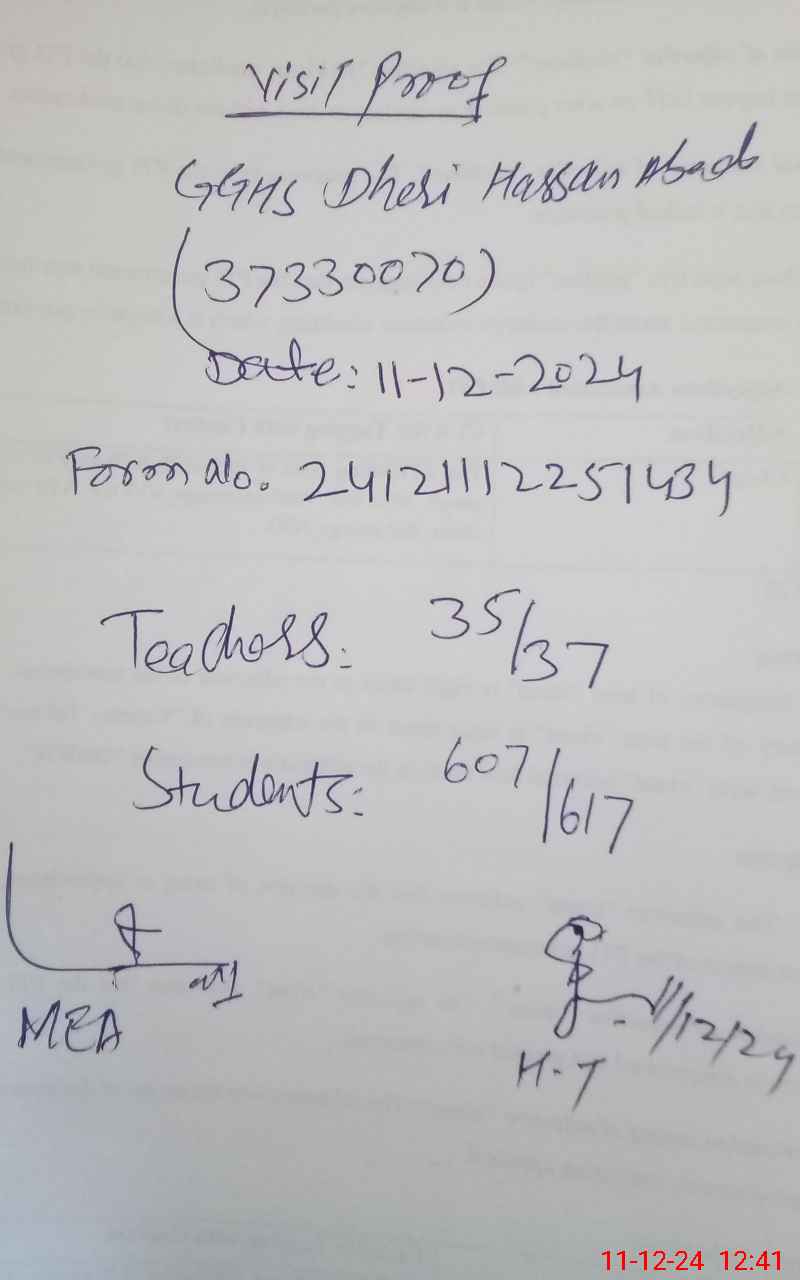 Visit Proof
GGHS Dheri Hassan Abad
(37330070)
Date: 11-12-2024
Form No. 24121112251434
Teachers: 35/37
Students: 607/617
MEA
11/12/24
H-T
11-12-24 12:41